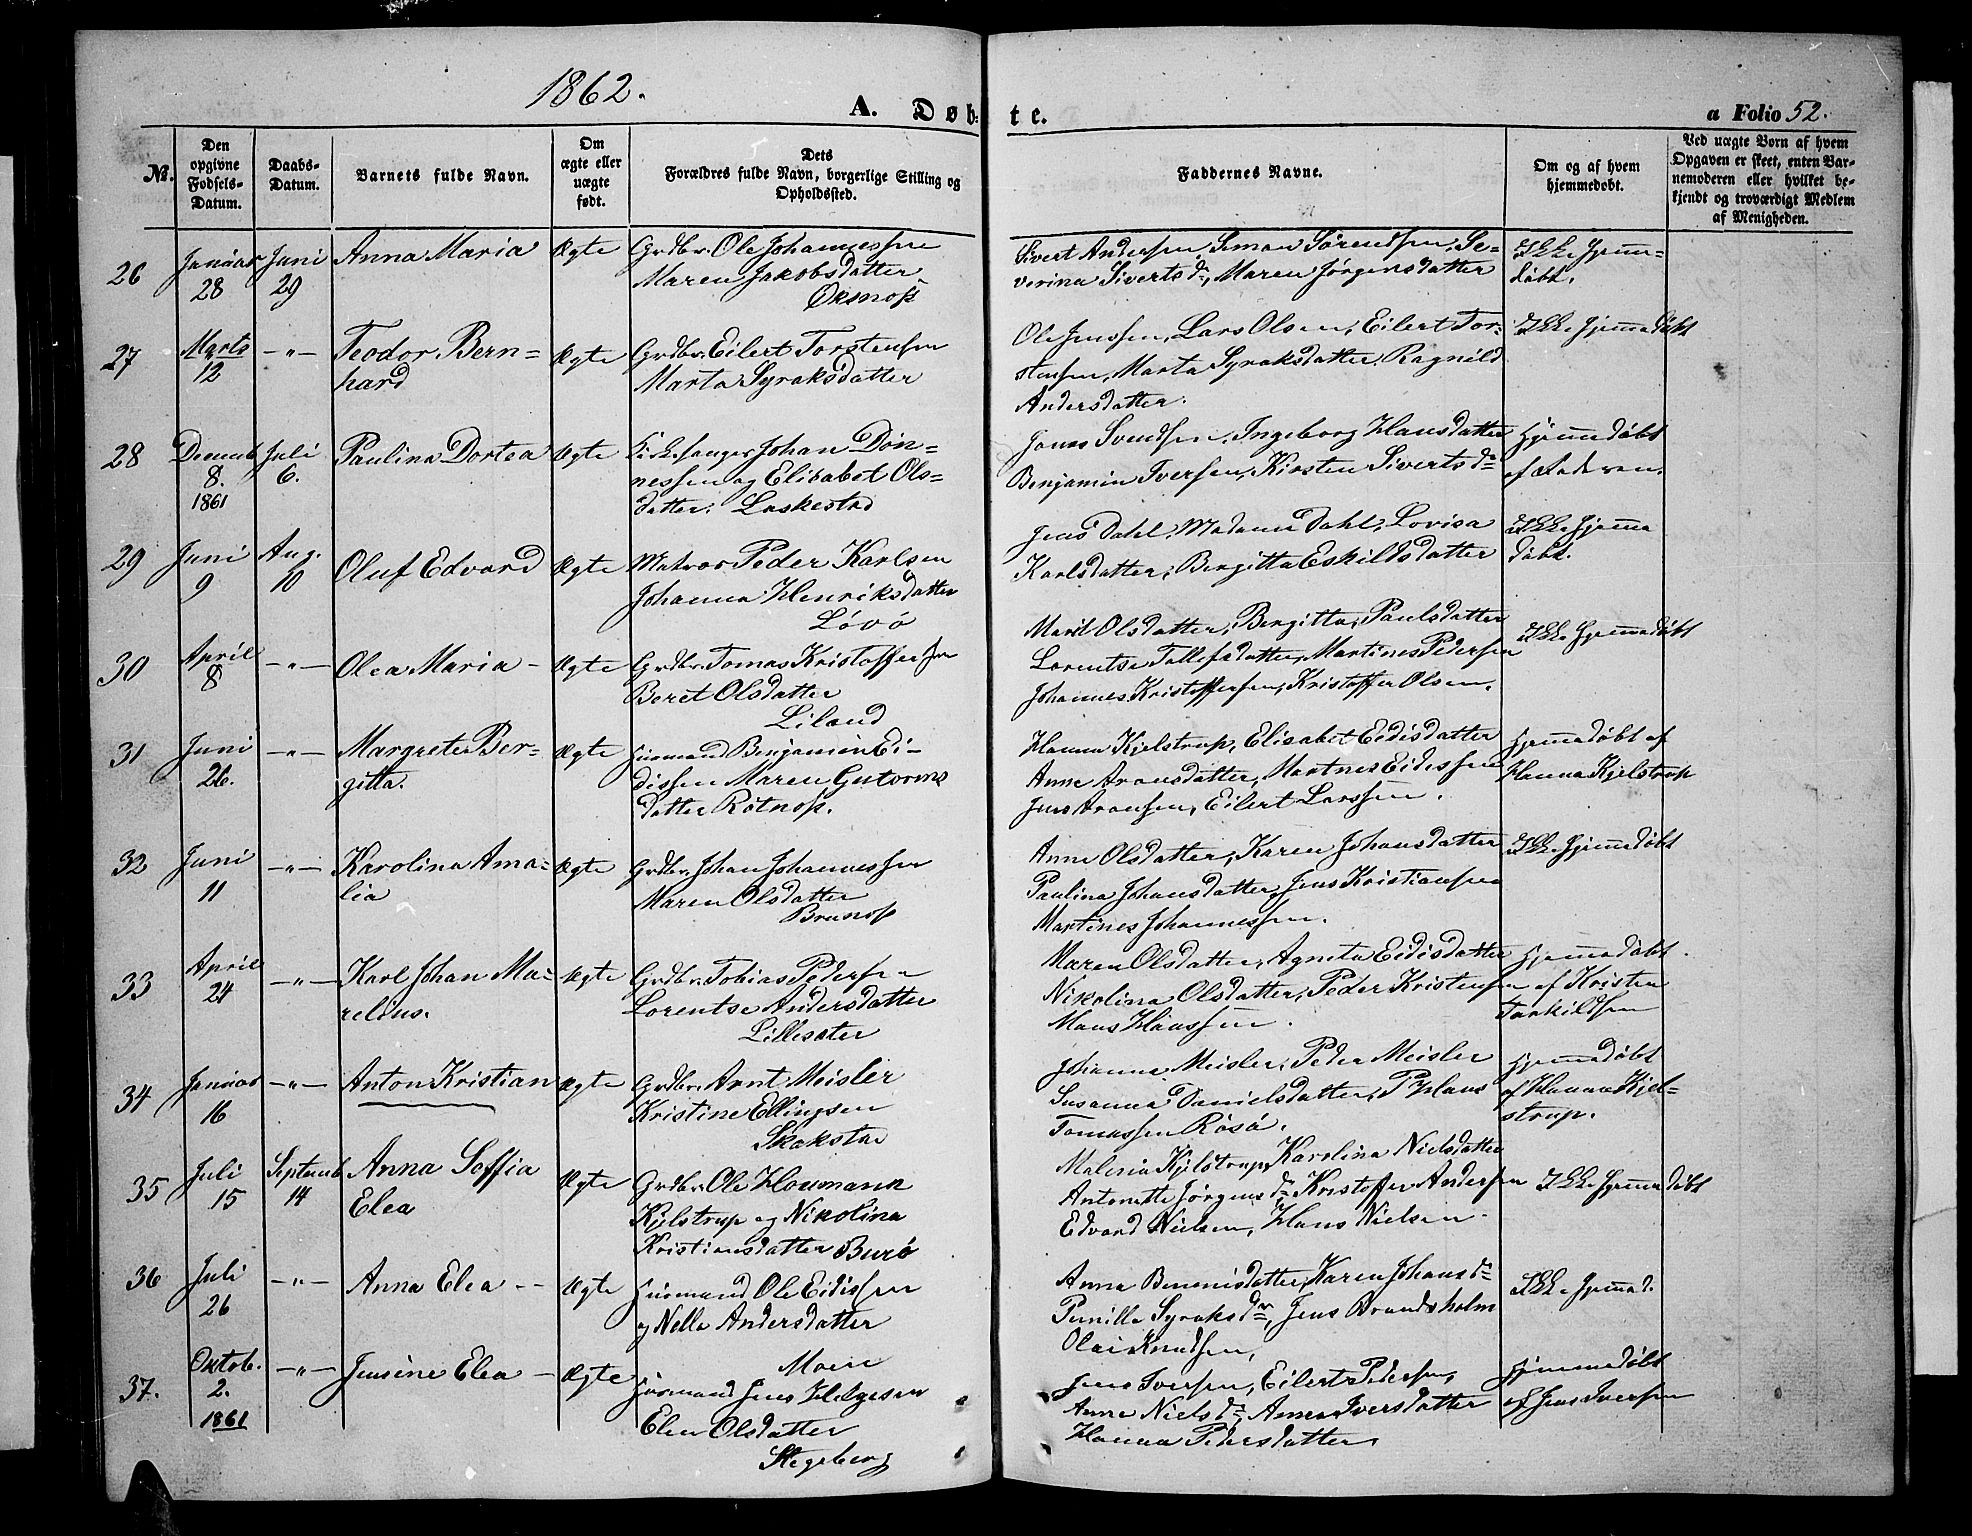 1862.
A. Døb-
te.
a Folio 52.
No.
Den opgivne Fødsels-Datum.
Daabs-Datum.
Barnets fulde Navn.
Om ægte eller uægte født.
Dets Forældres fulde Navn, borgerlige Stilling og Opholdssted.
Faddernes Navne.
Om og af hvem hjemmedøbt.
Ved uægte Børn af hvem Opgaven er skeet, enten Barnemoderen eller hvilket bekjendt og troværdigt Medlem af Menigheden.
26 Januar 28 Juni 29 Anna Maria Ægte Grdbr. Ole Johannessen
Maren Jakobsdatter
Oksnæs
Sivert Andersen, Simon Sørensen, Se-
verina Sivertsdr, Maren Jørgensdatter
Ikke hjemme-
døbt.
27 Marts 12 -"- Teodor Bern-
hard
Ægte Grdbr. Eilert Torstensen
Marta Syraksdatter
Ole Jenssen, Lars Olsen, Eilert Tor-
stensen, Marta Syraksdatter, Ragnild
Andersdatter.
Ikke hjemmedøbt
28 Decemb 8. 1861 Juli 6. Paulina Dortea Ægte Kirkesanger Johan Døn-
nessen og Elisabet Ols-
datter. Laskestad
Jonas Svendsen, Ingeborg Hansdatter
Benjamin Iversen, Kirsten Sivertsdr
Hjemmedøbt
af Faderen.
29 Juni 9 Aug. 10 Oluf Edvard Ægte Matros Peder Karlsen
Johanna Henriksdatter
Løvø
Jens Dahl, Madame Dahl, Lovisa
Karlsdatter, Bergitta Eskildsdatter
Ikke hjemme
døbt.
30 April 8 -"- Olea Maria - Ægte Grdbr. Tomas Kristoffersen
Beret Olsdatter
Liland
Marit Olsdatter, Bergitta Paulsdatter
Lorentse Tollefsdatter, Martines Pedersen
Johannes Kristoffersen, Kristoffer Olsen.
Ikke hjemmedøbt
31 Juni 26. -"- Margrete Ber-
gitta.
Ægte Husmand Benjamin Ei-
dissen Maren Guttorms
datter Rotnæs.
Hanna Kjelstrup, Elisabet Eidisdatter
Anne Aronsdatter, Martines Eidessen
Jens Aronsen, Eilert Larssen.
Hjemmedøbt af
Hanna Kjelstrup
32 Juni 11 -"- Karolina Ama-
lia
Ægte Grdbr. Johan Johannessen
Maren Olsdatter
Brunæs
Anne Olsdatter, Karen Johansdatter
Paulina Johansdatter, Jens Kristiansen
Martines Johannessen.
Ikke hjemmedøbt
33 April 24 -"- Karl Johan Ma-
relius.
Ægte Grdbr. Tobias Pedersen
Lorentse Andersdatter
Lillesæter
Maren Olsdatter, Agneta Eidisdatter
Nikolina Olsdatter, Peder Kristensen
Mons Hanssen.
Hjemmedøbt
af Kristen
Torkildsen
34 Januar 16 -"- Anton Kristian Ægte Grdbr. Arnt Meisler
Kristine Ellingsen
Skakstad
Johanna Meisler, Peder Meisler
Susanna Danielsdatter, Hans
Tomassen Røsø.
Hjemmedøbt
af Hanna Kjel-
strup.
35 Juli 15 Septemb 14 Anna Soffia
Elea
Ægte Grdbr. Ole Houmann
Kjelstrup og Nikolina
Kristiansdatter Burø
Malena Kjelstrup, Karolina Nielsdatter
Antonette Jørgensdr, Kristoffer Andersen
Edvard Nielsen, Hans Nielsen.
Ikke hjemmedøbt
36 Juli 26 -"- Anna Elea - Ægte Husmand Ole Eidissen
og Nella Andersdatter
Moen
Anna Benonisdatter, Karen Johansdr
Pernille Syraksdr, Jens Brandsholm
Olai Knudsen,
Ikke hjemmd.
37. Oktob. 2. 1861 -"- Jensine Elea - Ægte Husmand Jens Helgesen
Elen Olsdatter
Stegeberg
Jens Iversen, Eilert Pedersen,
Anne Nielsdr, Anne Iversdatter
Hanna Pedersdatter
Hjemmedøbt
af Jens Iversen